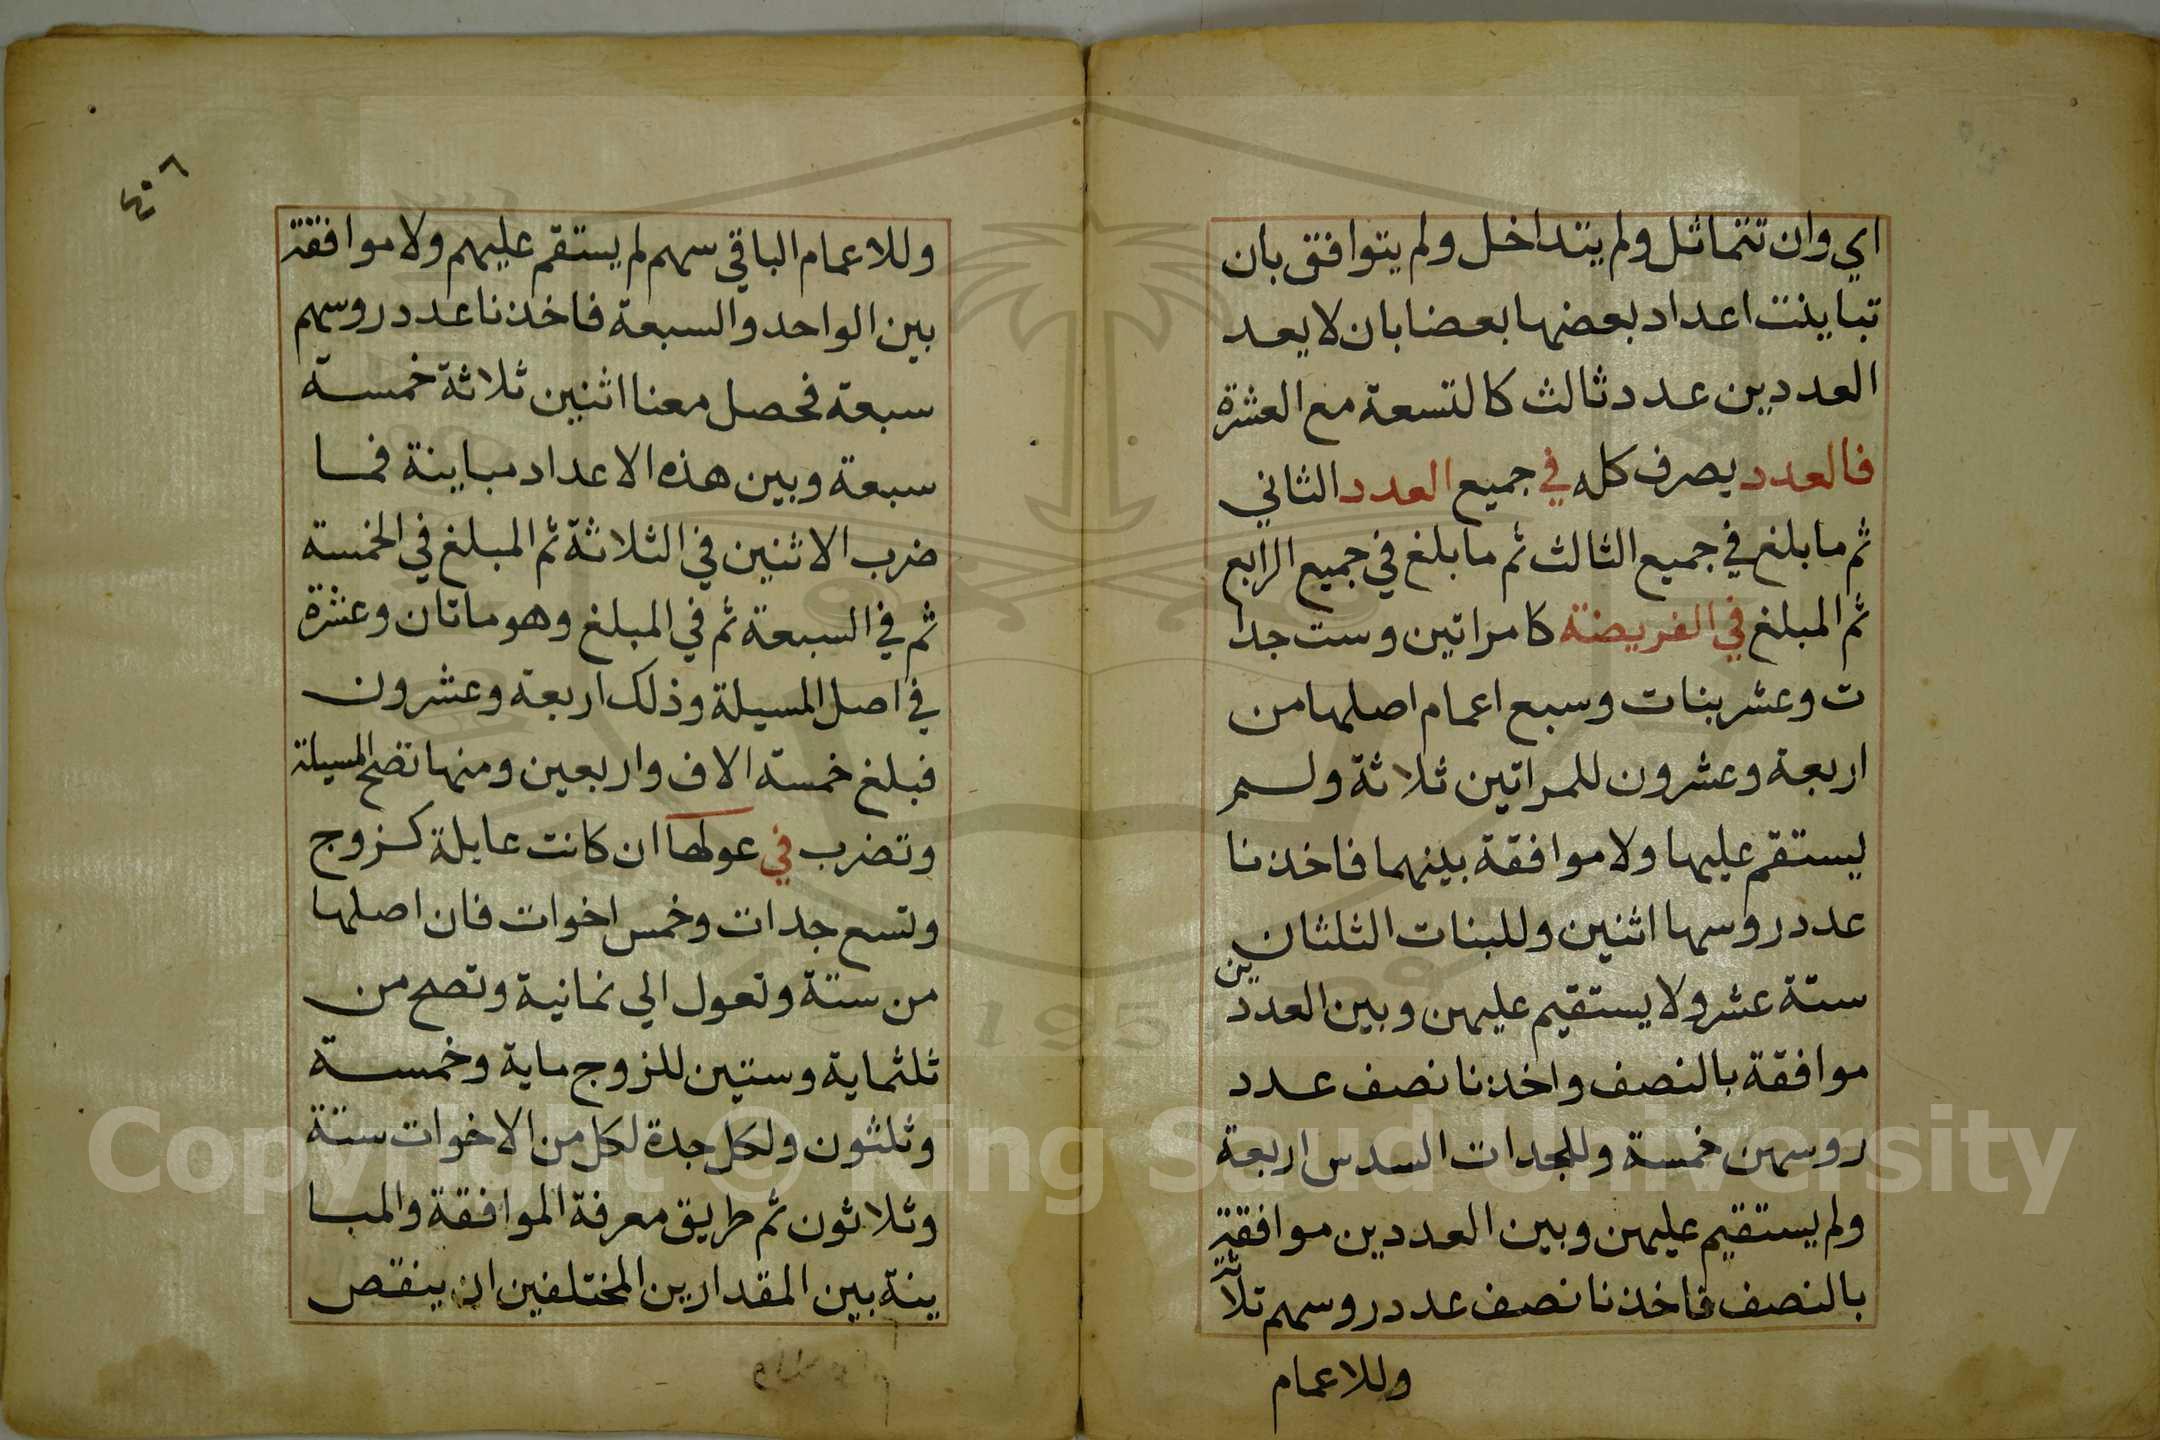 اي وان تتماثل ولم يتداخل ولم يتوافق بان
تباينت اعداد بعضها بعضا بان لا يعد
العددين عدد ثالث كالتسعة مع العشرة
فالعدد يصرف كله في جميع العدد الثاني
ثم ما بلغ في جميع الثالث ثم ما بلغ في جميع الرابع
ثم المبلغ في الفريضة كامراتين وست جدا
ت وعشر بنات وسبع اعمام اصلها من
اربعة وعشرون للمراتين ثلاثة ولم
يستقم عليها ولا موافقة بينهما فاخذنا
عدد روسها اثنين وللبنات الثلثان
ستة عشر ولا يستقيم عليهن وبين العددين
موافقة بالنصف واخذنا نصف عدد
روسهن خمسة وللجدات السدس اربعة
ولم يستقيم عليهن وبين العددين موافقة
بالنصف فاخذنا نصف عدد روسهم ثلاثة
وللاعمام
٤٠٦
وللاعمام الباقي سهم لم يستقم عليهم ولا موافقة
بين الواحد والسبعة فاخذنا عدد روسهم
سبعة فحصل معنا اثنين ثلاثة خمسة
سبعة وبين هذه الاعداد مباينة فما
ضرب الاثنين في الثلاثة ثم المبلغ في الخمسة
ثم في السبعة ثم في المبلغ وهو ماتان وعشرة
في اصل المسيلة وذلك اربعة وعشرون
فبلغ خمسة الاف واربعين ومنها تضح المسيلة
وتضرب في عولها ان كانت عايلة كزوج
وتسع جدات وخمس اخوات فان اصلها
من ستة وتعول الي ثمانية وتصح من
ثلثماية وستين للزوج ماية وخمسة
وثلثون ولكل جدة لكل من الاخوات ستة
وثلاثون ثم طريق معرفة الموافقة والمبا
ينة بين المقدارين المختلفين ان ينقص
1957
Copyright © King Saud University